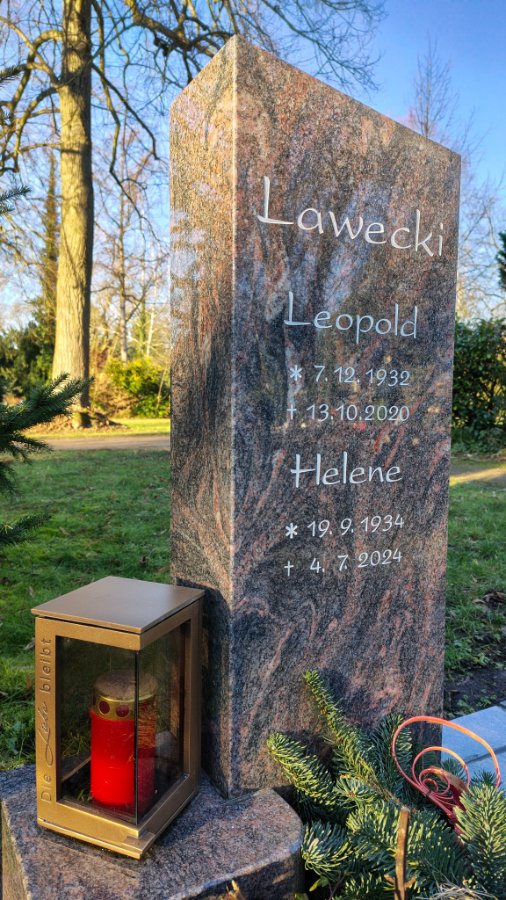 Lawecki
Leopold
* 7. 12. 1932
† 13. 10. 2020
Helene
* 19. 9. 1934
† 4. 7. 2024
Die Liebe bleibt